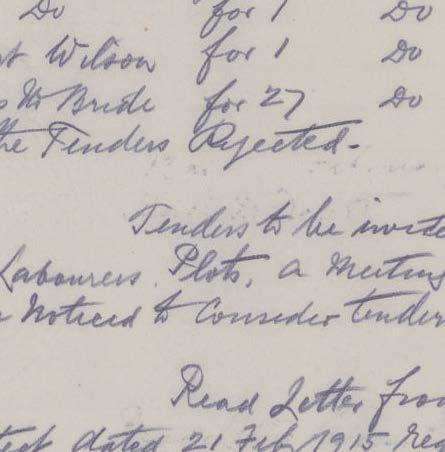 Do for 1 Do
Wilson for 1 Do
McBride for 27 Do
the Tenders Rejected -
Tenders to be invite
Labourers Plots, a Meeting
Noticed to Consider tender
Read Letter from
dated 21 Feb 1915